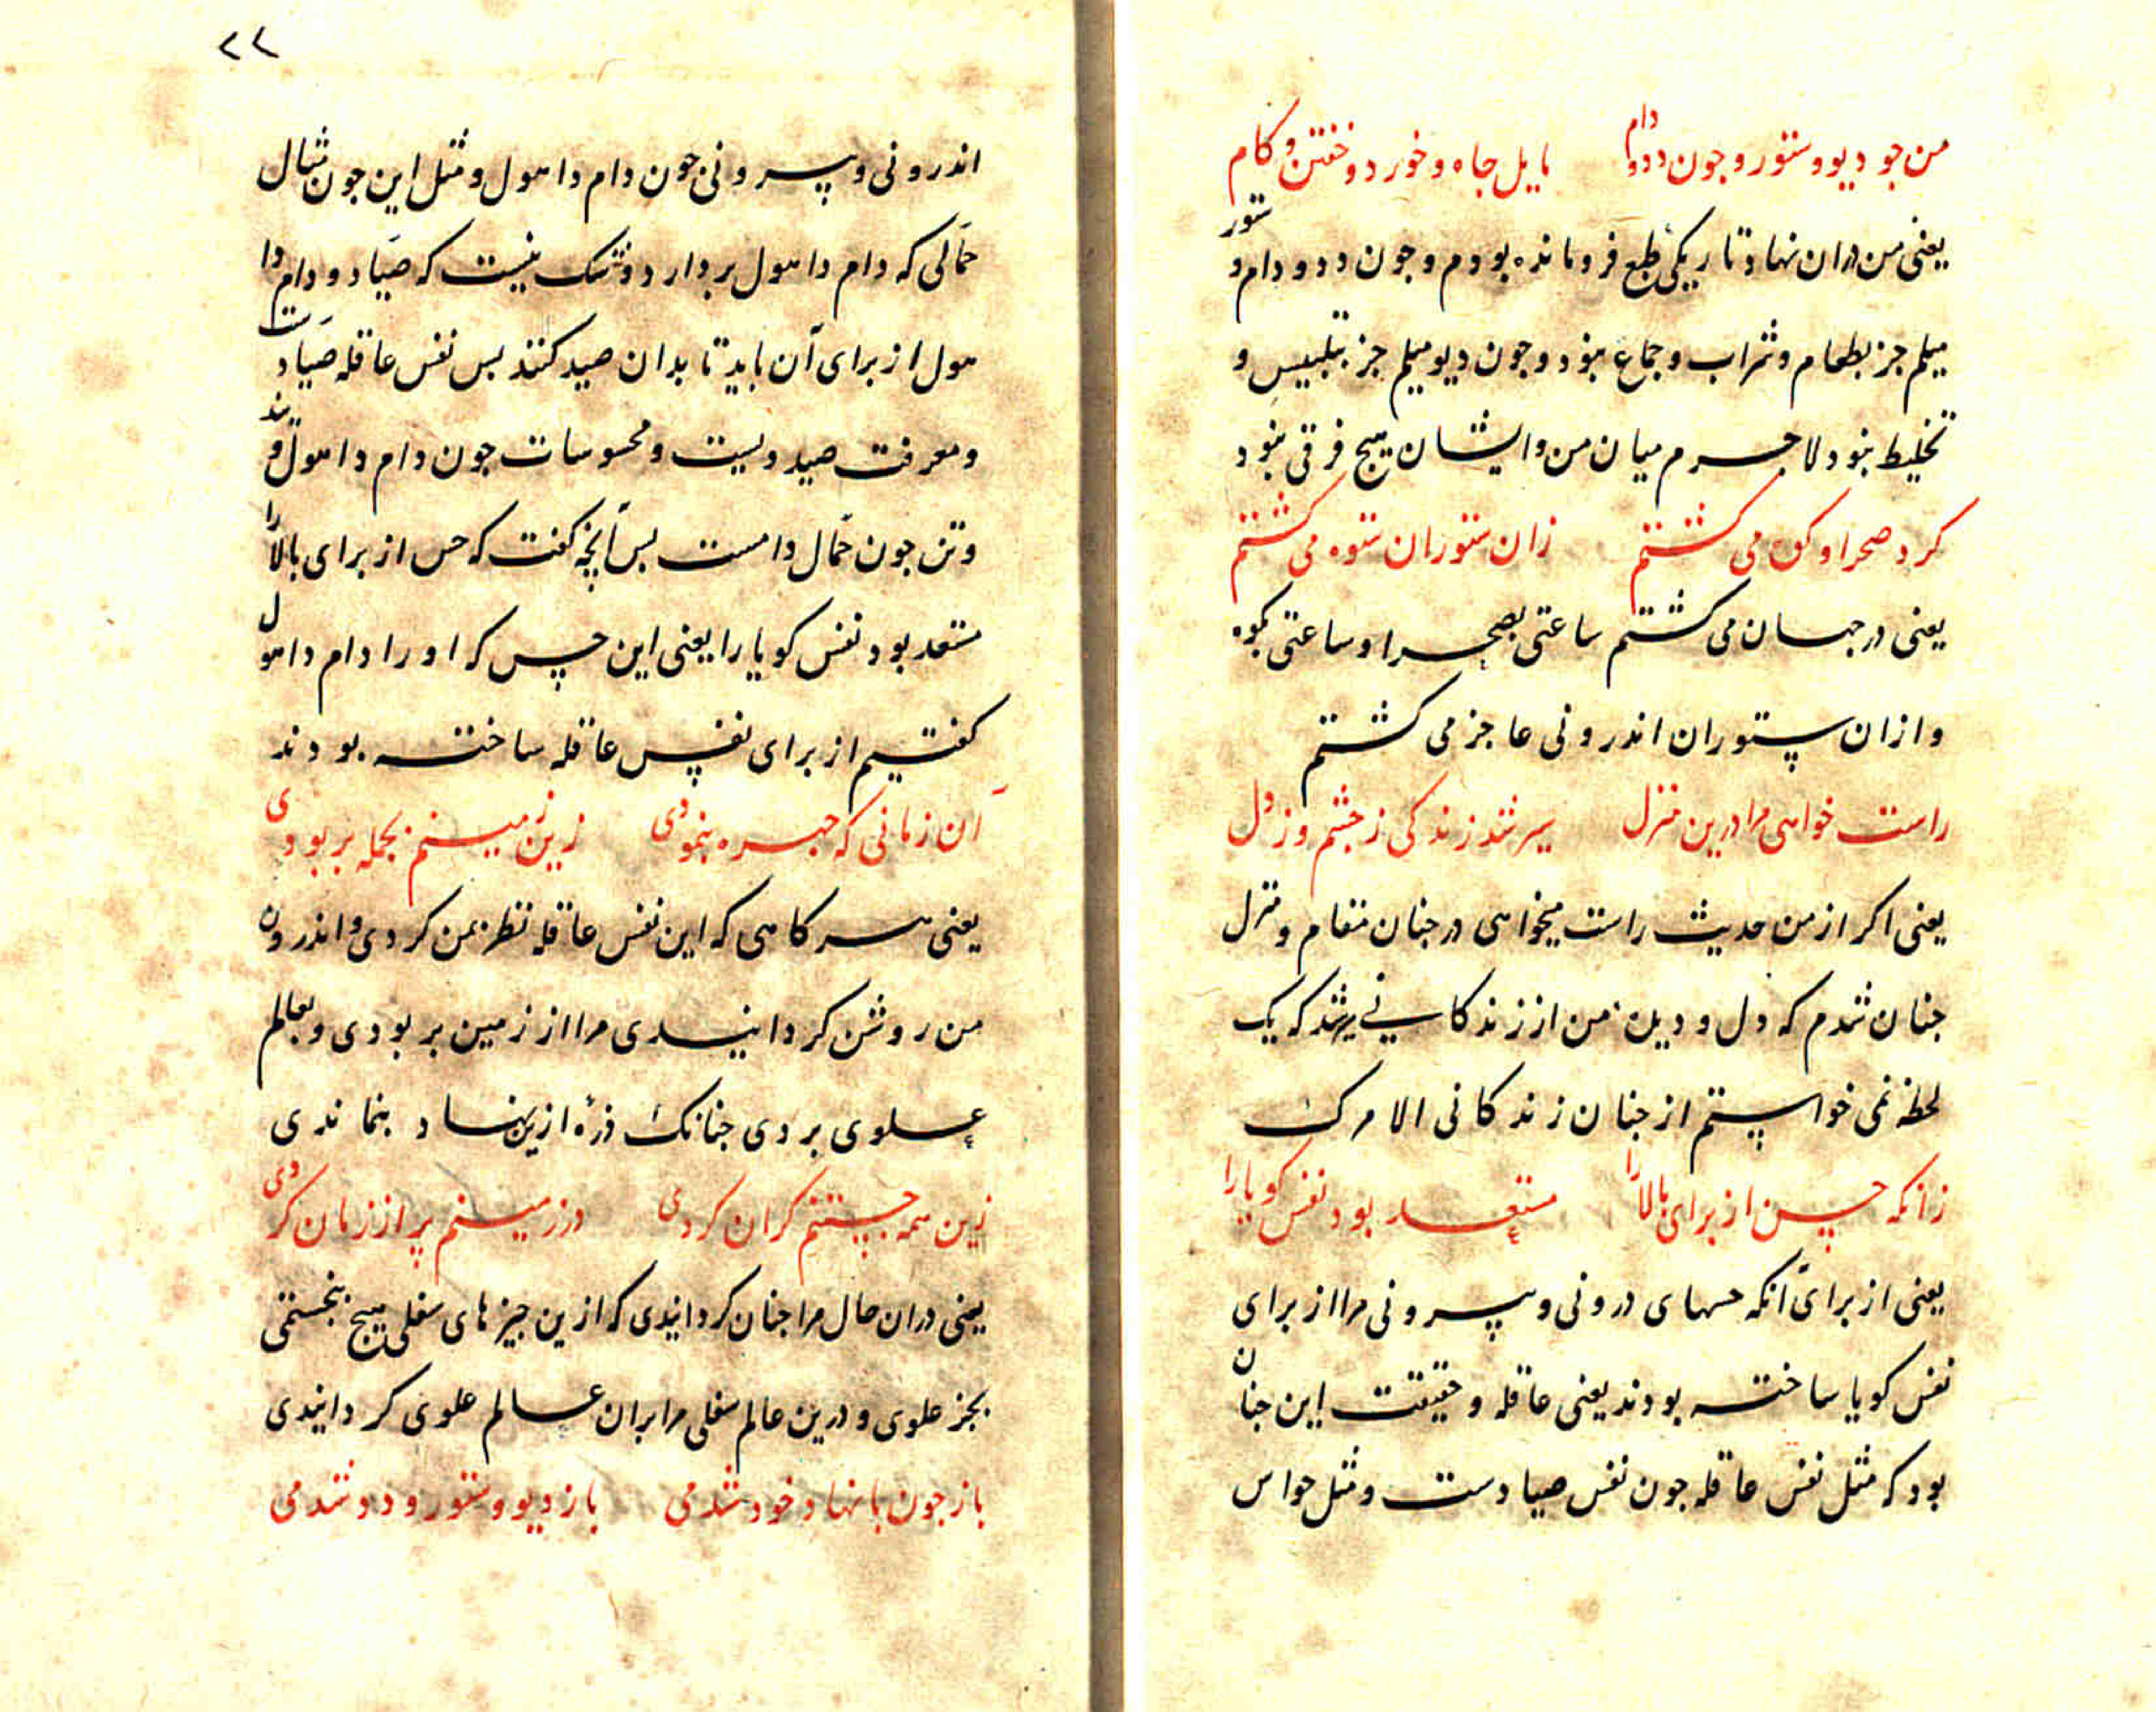 من جو دیو و ستور و جون دد و دام مایل جاه و خورد و خفتن و کام
یعنی من دران نهاد تاریکی طبع فرومانده بودم و جون دد و دام و ستور
میلم جز بطعام و شراب و جماع نبود و جون دیو میلم جز بتلبیس و
تخلیط نبود لاجرم میان من و ایشان هیچ فرقی نبود
کرد صحرا و که می کشتم زان ستوران ستوه می کشتم
یعنی در جهان می کشتم ساعتی بصحرا و ساعتی بکوه
و ازان ستوران اندرونی عاجز می کشتم
راست خواهی مرا درین منزل سیر شد زندکی ز جشم و ز دل
یعنی اکر از من حدیث راست میخواهی در جنان مقام و منزل
جنان شدم که دل و دین من از زندکانی سیر شد که یک
لحظه نمی خواستم از جنان زندکانی الا مرک
زانکه حس از برای بالا را مستعد بود نفس کویا را
یعنی از برای آنکه حسهای درونی و بیرونی مرا از برای
نفس کویا ساخته بودند یعنی عاقله و حقیقت این جنان
بود که مثل نفس عاقله جون نفس صیادست و مثل حواس
٢٢
اندرونی و بیرونی جون دام داهول و مثل این جون مثال
حمّالی که دام داهول بردارد و شک نیست که صیّاد و دام دا
هول از برای آن باید تا بدان صید کنند بس نفس عاقله صیّادست
و معرفت صید ویست و محسوسات جون دام داهول ویند
و تن جون حمّال دامست بس آنچه کفت که حس از برای بالا را
مستعد بود نفس کویا را یعنی این حس که او را دام داهول
کفتیم از برای نفس عاقله ساخته بودند
آن زمانی که جهره بنمودی زین زمینم بجمله بربودی
یعنی هر کاهی که این نفس عاقله نظر بمن کردی و اندرون
من روشن کردانیدی مرا از زمین بربودی و بعالم
علوی بردی جنانک ذرهٔ ازین نهاد بنماندی
زین همه جستنم کران کردی وز زمینم بر از زمان کردی
یعنی دران حال مرا جنان کردانیدی که ازین جیزهای سفلی هیچ نجستمی
بجز علوی و درین عالم سفلی مرا بران عالم علوی کردانیدی
باز جون با نهاد خود شدمی باز دیو و ستور و دد شدمی